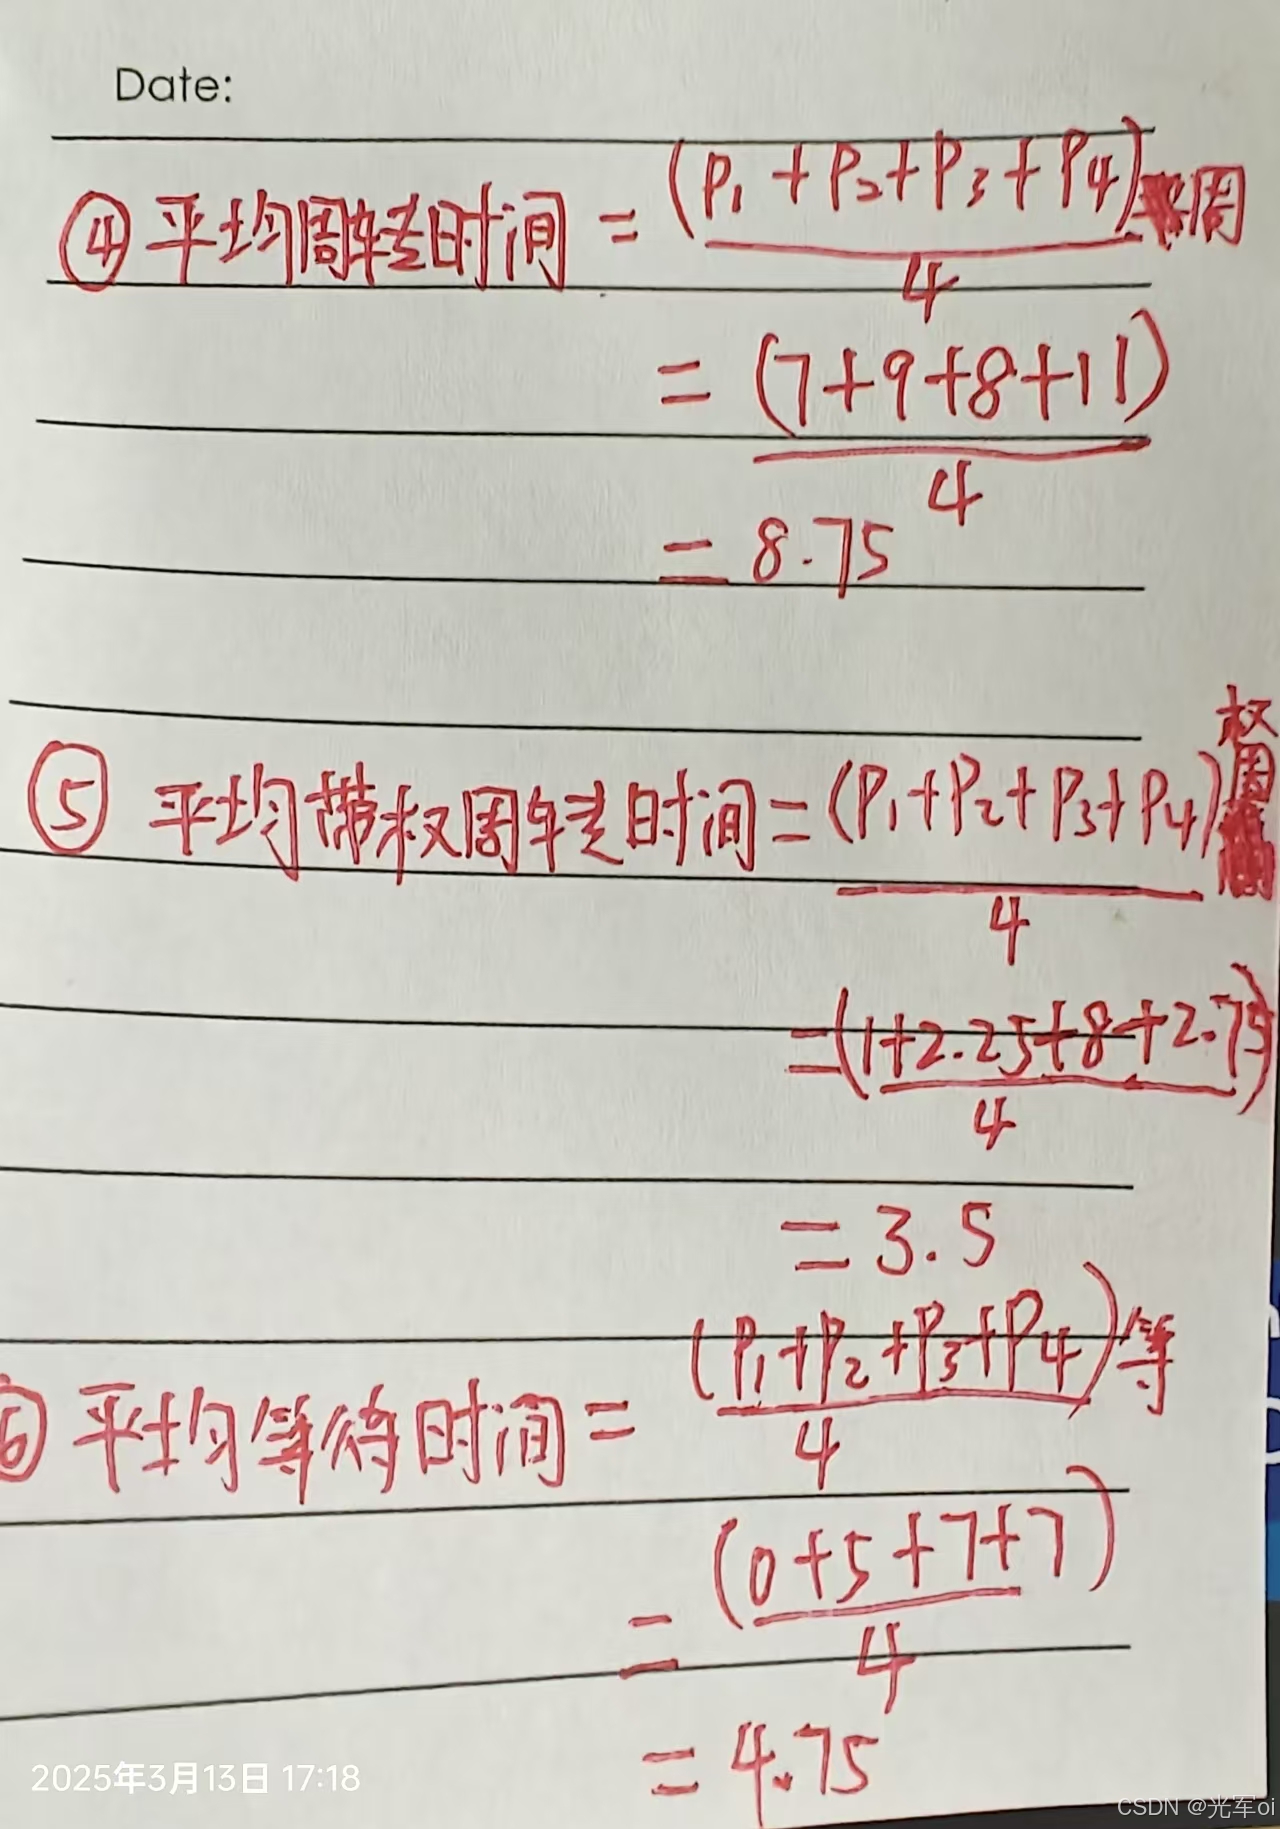 Date:
④ 平均周转时间 = (P1+P2+P3+P4)周
4
= (7+9+8+11)
4
= 8.75
⑤ 平均带权周转时间 = (P1+P2+P3+P4)权周
4
= (1+2.25+8+2.75)
4
= 3.5
⑥ 平均等待时间 = (P1+P2+P3+P4)等
4
= (0+5+7+7)
4
= 4.75
2025年3月13日 17:18
CSDN @光军oi